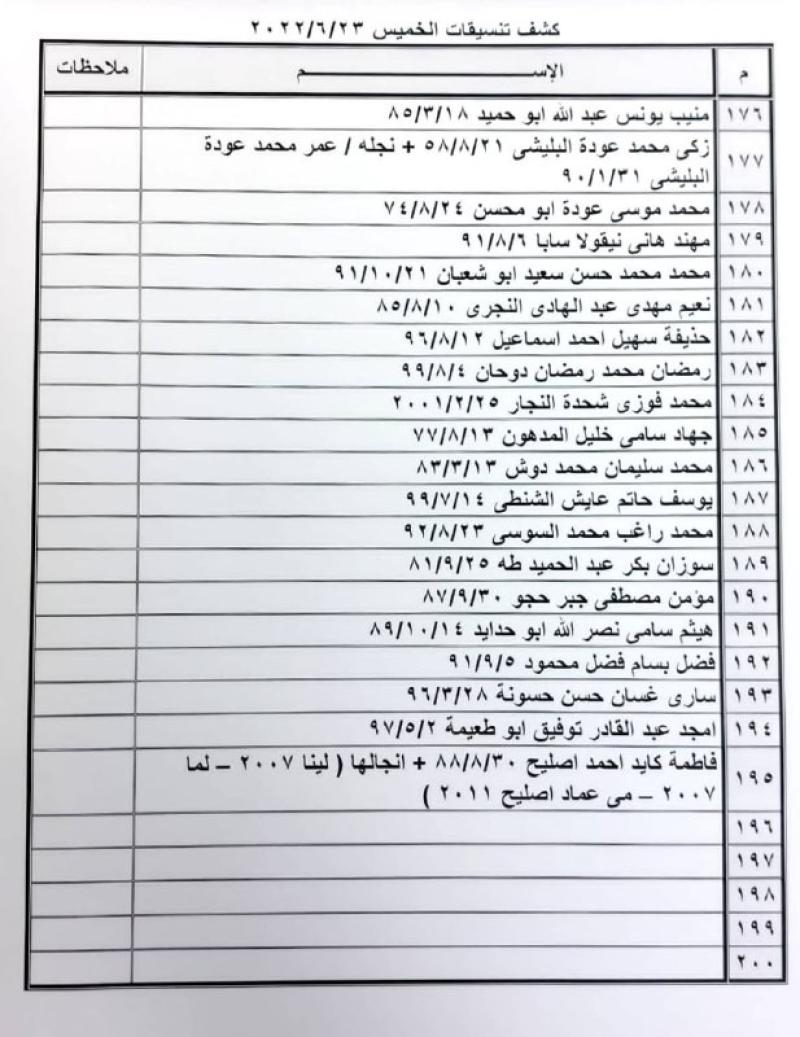 كشف تنسيقات الخميس ٢٠٢٢/٦/٢٣
م الإســـــــــــــــم ملاحظات
١٧٦ منيب يونس عبد الله ابو حميد ٨٥/٣/١٨
١٧٧ زكى محمد عودة البليشى ٥٨/٨/٢١ + نجله / عمر محمد عودة
البليشى ٩٠/١/٣١
١٧٨ محمد موسى عودة ابو محسن ٧٤/٨/٢٤
١٧٩ مهند هانى نيقولا سابا ٩١/٨/٦
١٨٠ محمد محمد حسن سعيد ابو شعبان ٩١/١٠/٢١
١٨١ نعيم مهدى عبد الهادى النجرى ٨٥/٨/١٠
١٨٢ حذيفة سهيل احمد اسماعيل ٩٦/٨/١٢
١٨٣ رمضان محمد رمضان دوحان ٩٩/٨/٤
١٨٤ محمد فوزى شحدة النجار ٢٠٠١/٢/٢٥
١٨٥ جهاد سامى خليل المدهون ٧٧/٨/١٣
١٨٦ محمد سليمان محمد دوش ٨٣/٣/١٣
١٨٧ يوسف حاتم عايش الشنطى ٩٩/٧/١٤
١٨٨ محمد راغب محمد السوسى ٩٢/٨/٢٣
١٨٩ سوزان بكر عبد الحميد طه ٨١/٩/٢٥
١٩٠ مؤمن مصطفى جبر حجو ٨٧/٩/٣٠
١٩١ هيثم سامى نصر الله ابو حدايد ٨٩/١٠/١٤
١٩٢ فضل بسام فضل محمود ٩١/٩/٥
١٩٣ سارى غسان حسن حسونة ٩٦/٣/٢٨
١٩٤ امجد عبد القادر توفيق ابو طعيمة ٩٧/٥/٢
١٩٥ فاطمة كايد احمد اصليح ٨٨/٨/٣٠ + انجالها ( لينا ٢٠٠٧ – لما
٢٠٠٧ – مى عماد اصليح ٢٠١١ )
١٩٦
١٩٧
١٩٨
١٩٩
٢٠٠